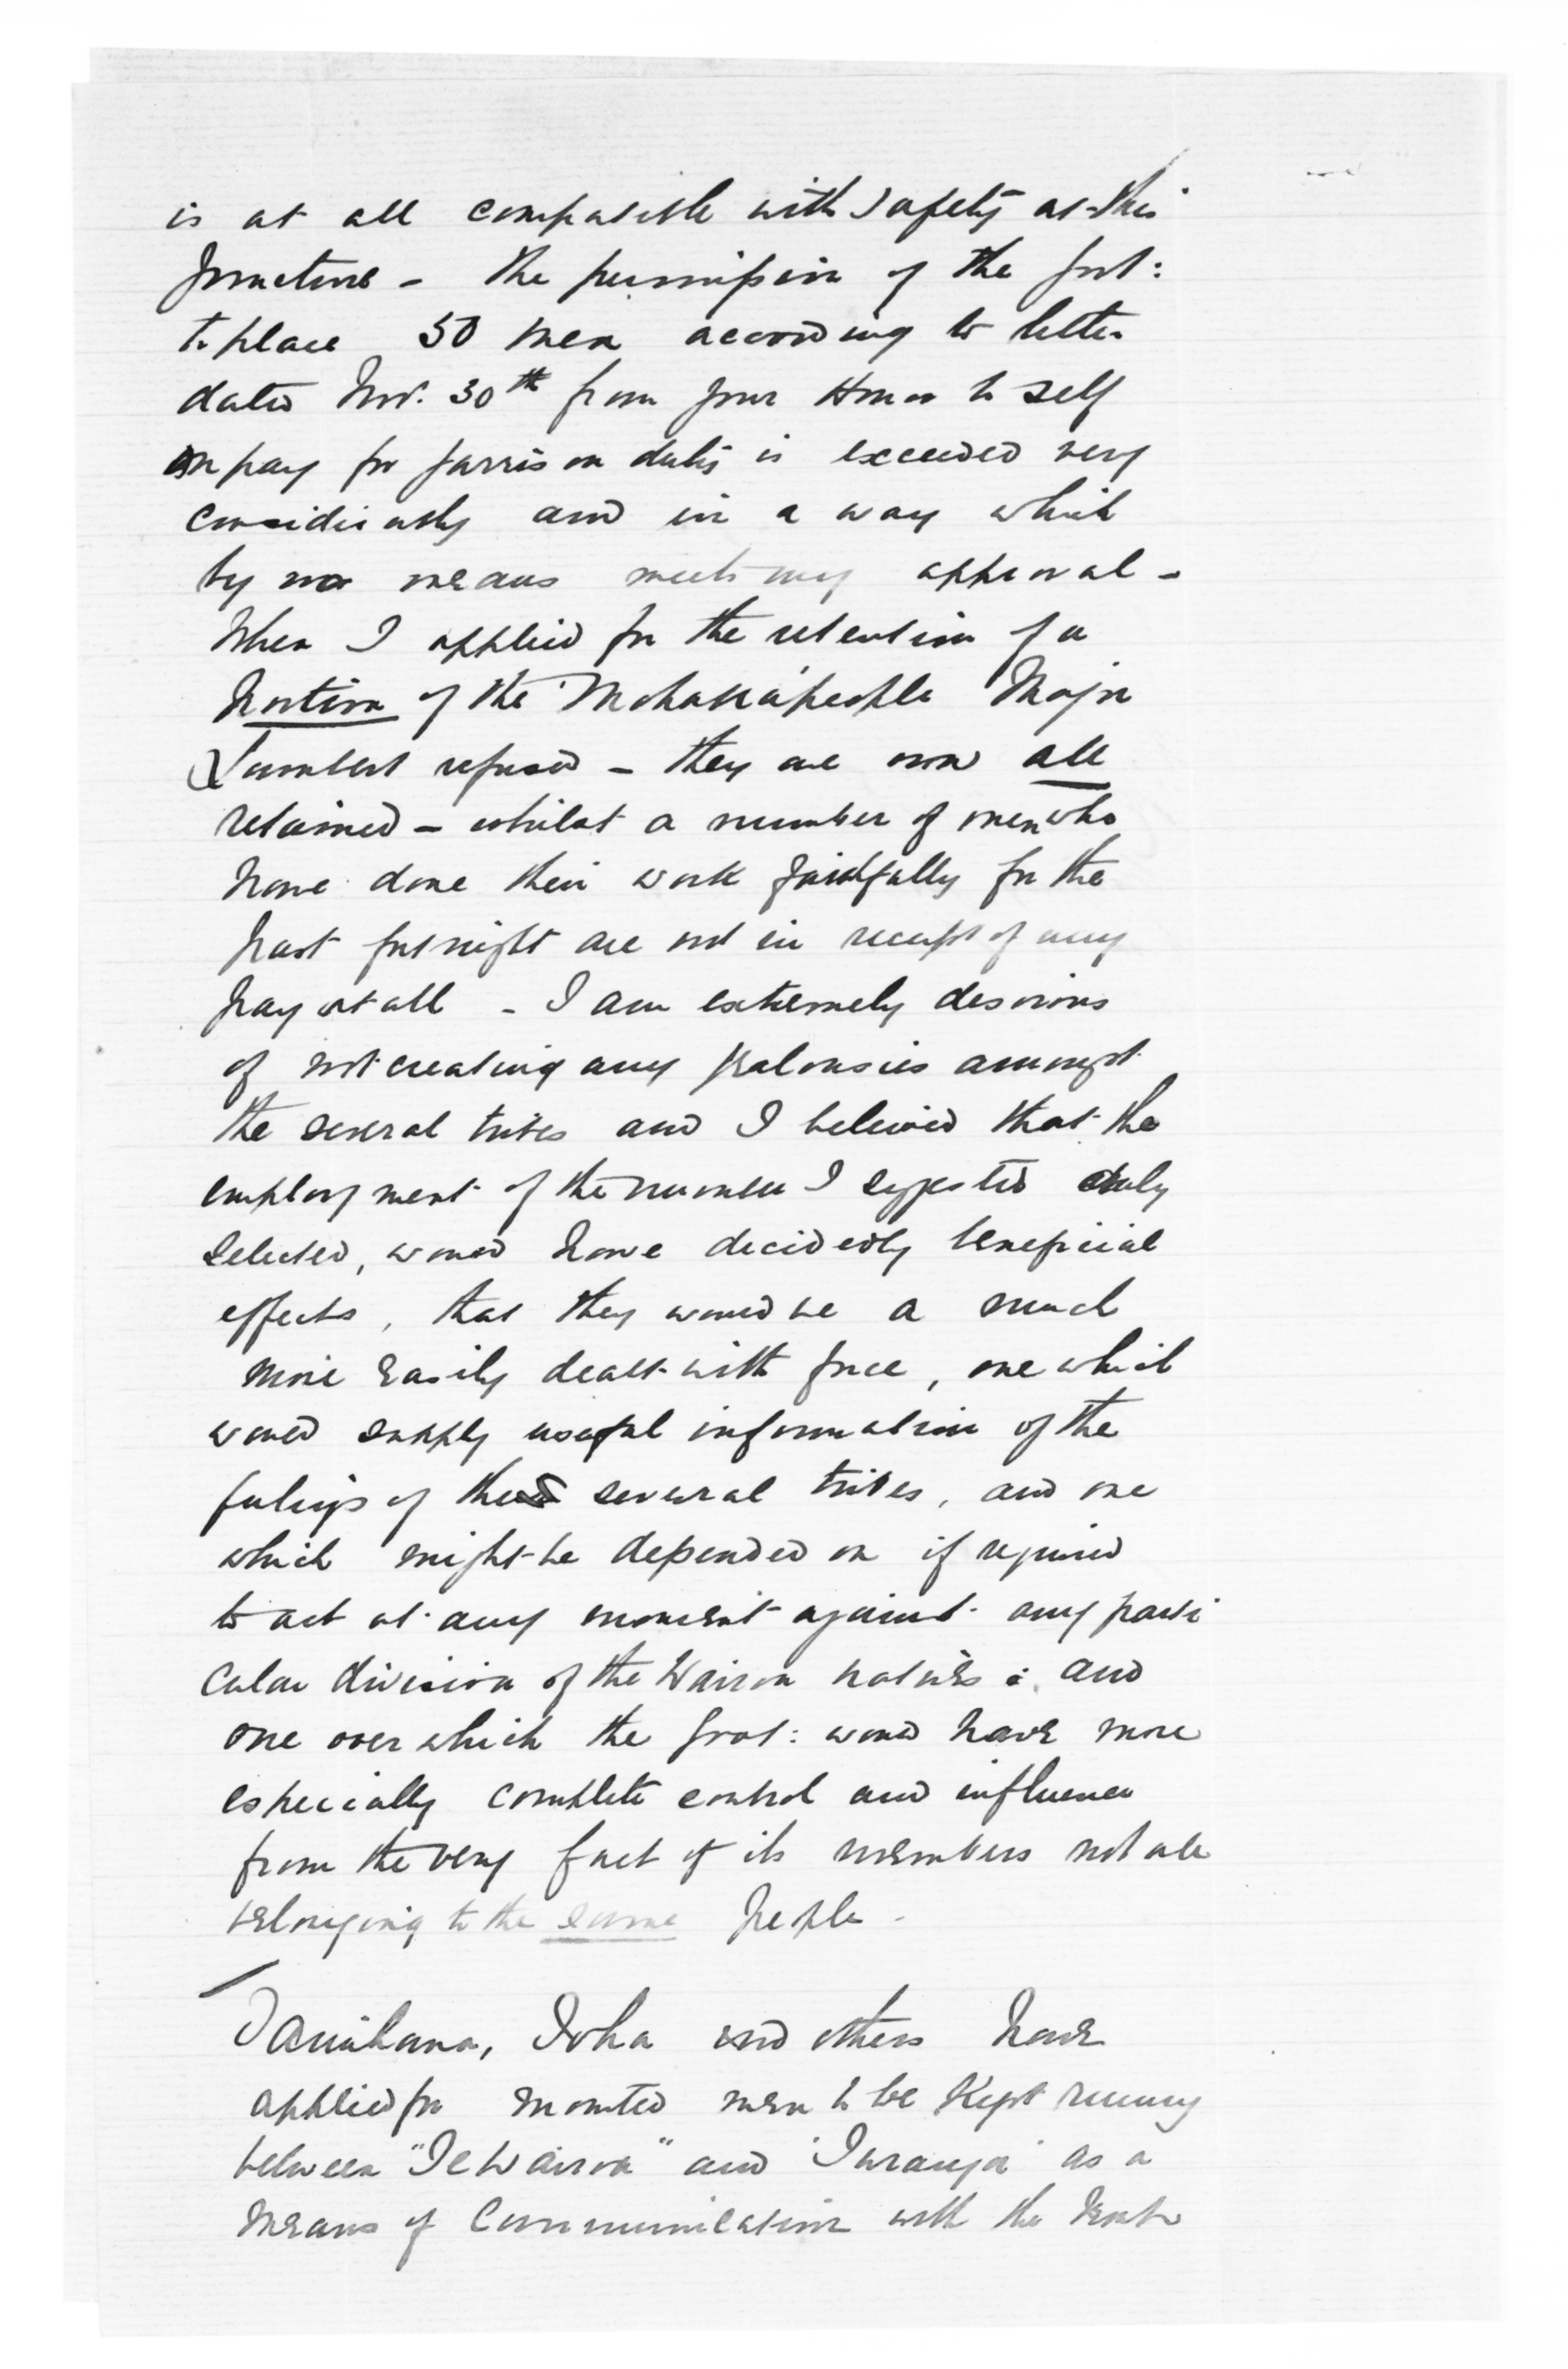 is at all compatible with safety at this
juncture - the permission of the Govt:
to place 50 men according to letter
dated Nov. 30th from your Honor to self
on pay for garrison duty is exceeded very
considerably and in a way which
by no means meets my approval -
When I applied for the retention of a
portion of the Mohaka people Major
Lambert refused - they are now all
retained - whilst a number of men who
have done their work faithfully for the
past fortnight are not in receipt of any
pay at all - I am extremely desirous
of not creating any jealousies amongst
the several tribes and I believed that the
employment of the number I suggested duly
selected, would have decidedly beneficial
effects, that they would be a much
more easily dealt with force, one which
would supply useful information of the
feelings of the several tribes, and one
which might be depended on if required
to act at any moment against any parti
cular division of the Wairoa natives; and
one over which the Govt: would have more
especially complete control and influence
from the very fact of its members not all
belonging to the same people -
Tamihana, Ihaka and others have
applied for mounted men to be kept running
between "Te Wairoa" and "Turanga" as a
means of communication with the